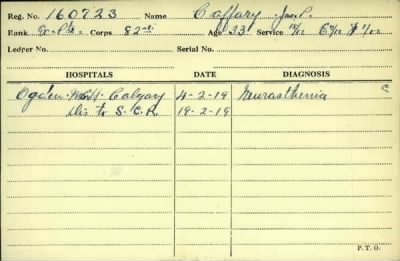 Reg. No. 160723 Name Caffary Jas. P.
Rank Ex-Pte. Corps 82nd Age 33 Service
Ledger No. Serial No.
HOSPITALS DATE DIAGNOSIS
Ogden M.C.H. Calgary 4-2-19 Neurasthenia C
Dis to S.C.R. 19-2-19
P.T.O.